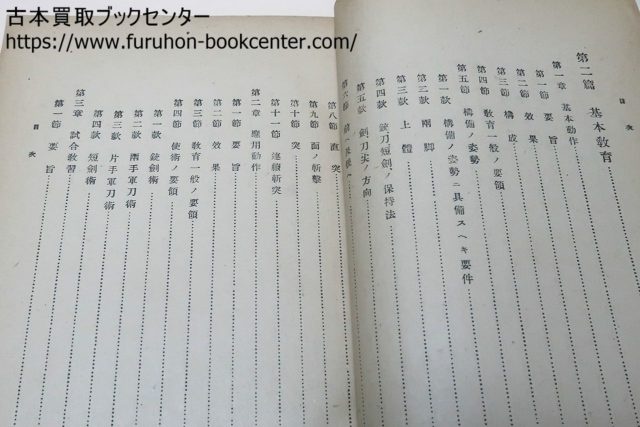 古本買取ブックセンター
https://www.furuhon-bookcenter.com/
目次
第二篇 基本敎育
第一章 基本動作
第一節 要旨
第二節 效果
第三節 構成
第四節 敎育一般ノ要領
第五節 構備ノ姿勢
構備ノ姿勢ニ具備スヘキ要件
第二款 兩脚
第三款 上體
第四款 銃刀短劍ノ保持法
第五款 劍刀尖ノ方向
第六節
第八節 直突
第九節 面ノ斬擊
第十節 突
第十一節 連續斬突
第二章 應用動作
第一節 要旨
第二節 效果
第三節 敎育一般ノ要領
第四節 使術ノ要領
第一款 銃劍術
第二款 兩手軍刀術
第三款 片手軍刀術
第四款 短劍術
第三章 試合敎習
第一節 要旨
目次